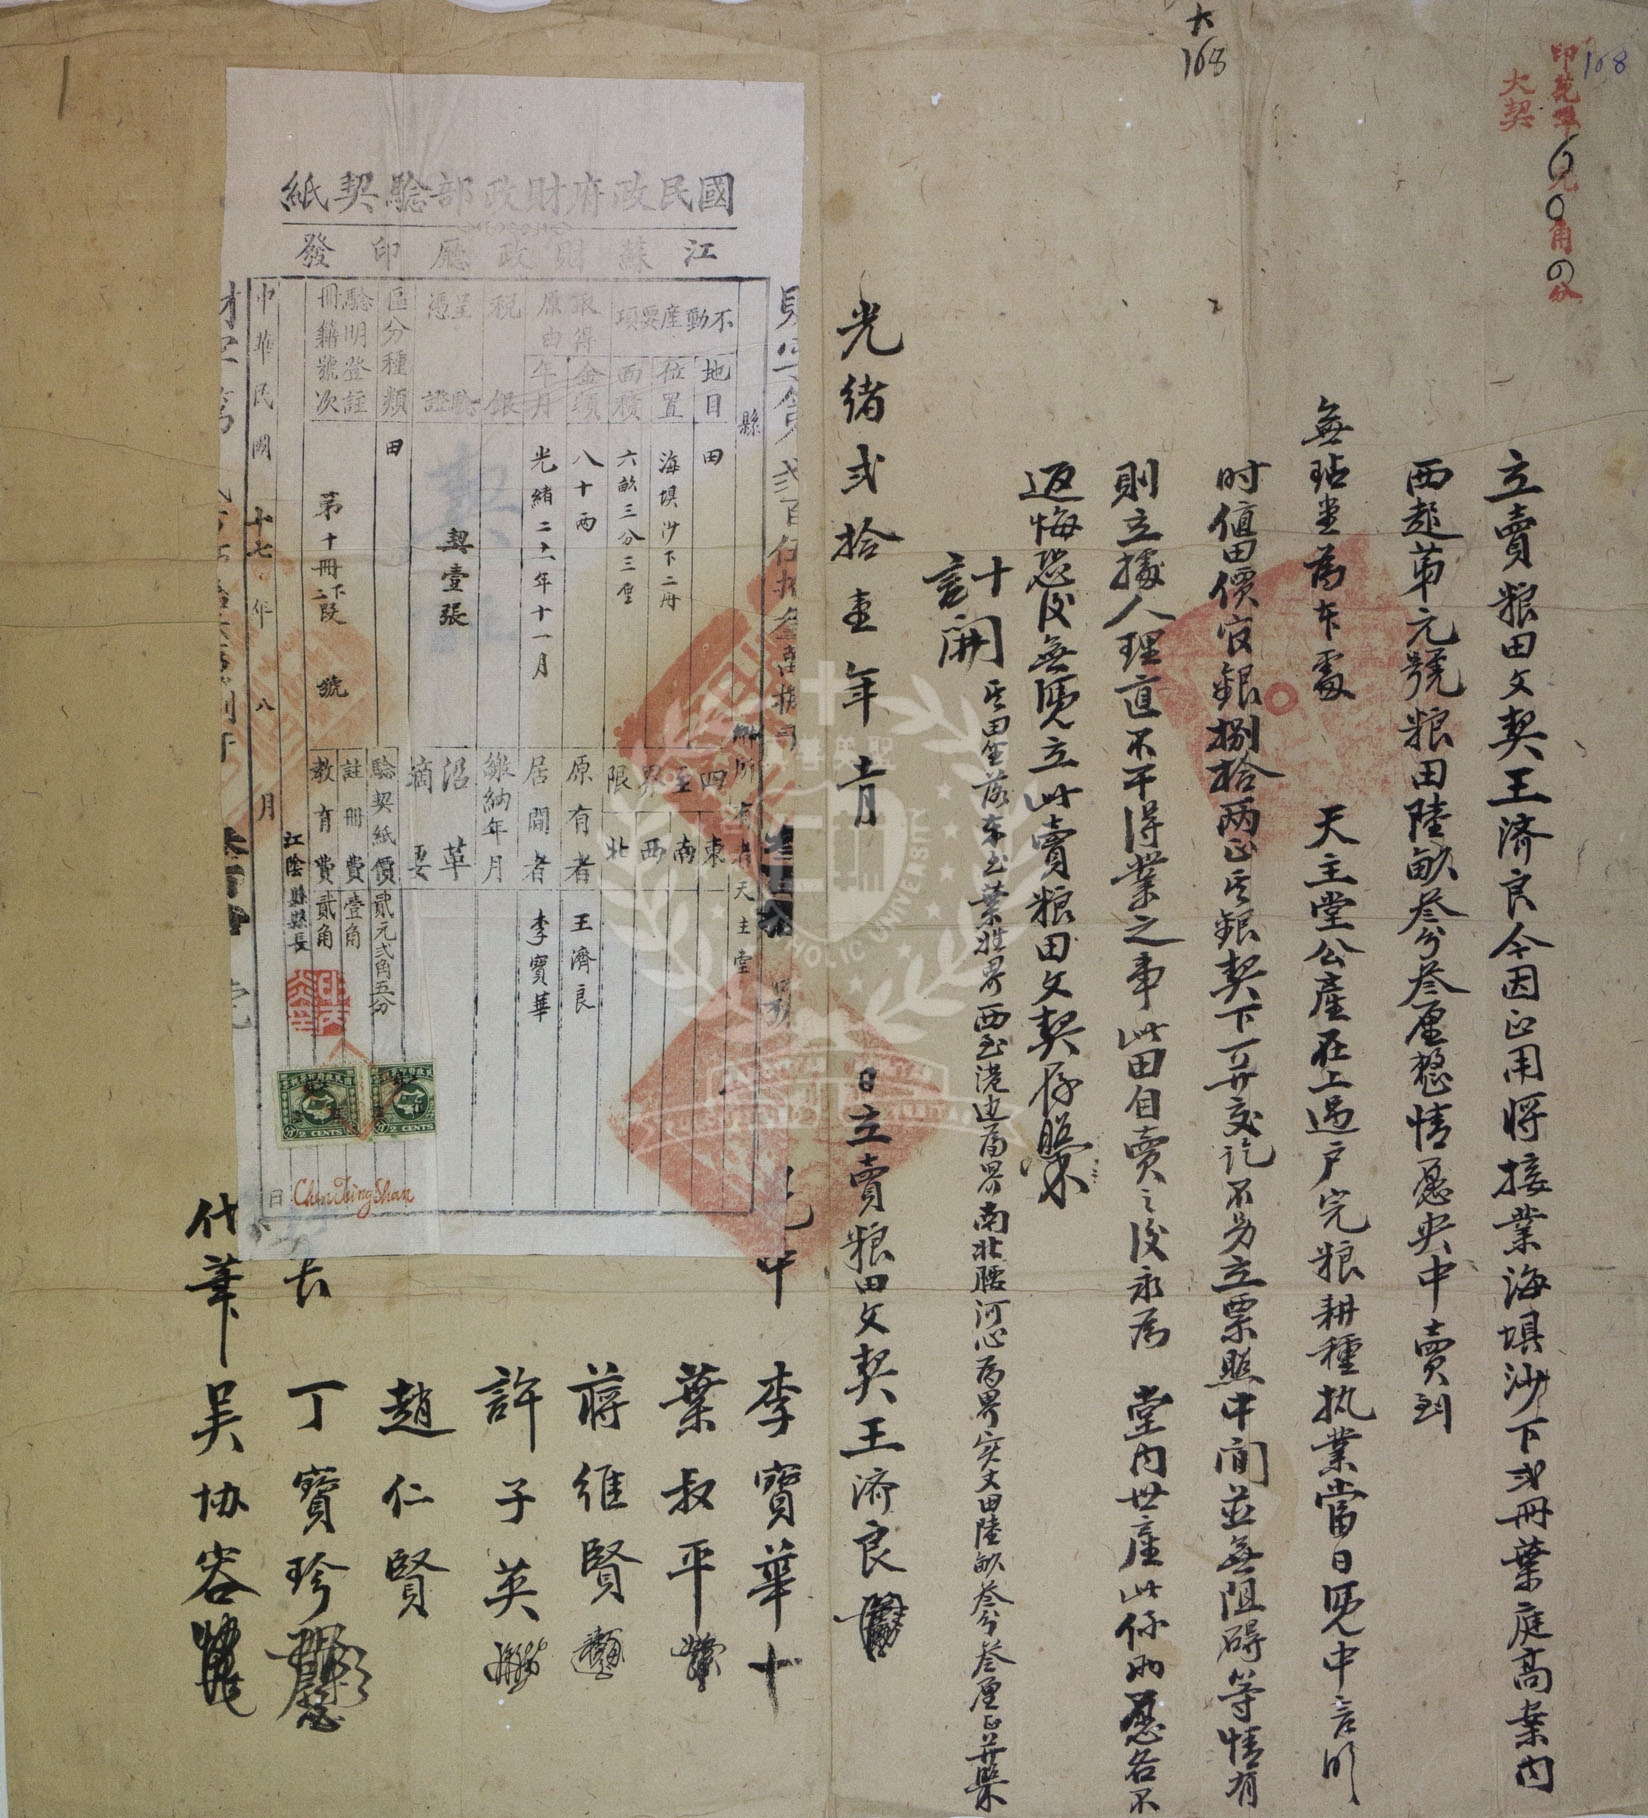 大
168
168
印花單6元0角0分
大契
立賣粮田文契王济良今因正用將接業海埧沙下弍冊葉庭高案内
西起苐元號粮田陸畝叁分叁厘整情愿央中賣到
無玷堂為本處
天主堂公產在上過户完粮耕種执業當日凴中言明
时值田價官銀捌拾两正其銀契下一并交讫不另立票照中间並無阻碍等情有
則立據人理直不干得業之事此田自賣之後永為
堂内世產此係两愿各不
返悔恐後無凴立此賣粮田文契存照
十
計開
其田坐落东至葉姓界西至港边為界南北腰河心為界实丈田陸畝叁分叁厘正并照
光緒弍拾壹年十一月
日立賣粮田文契王济良
中
李寶華十
葉叔平
蔣維賢
許子英
趙仁賢
丁寶珍
代筆
吴协容
國民政府財政部驗契紙
江蘇財政廳印發
縣
不動產要項
地目
田
位置
海埧沙下二冊
面積
六畝三分三厘
取得原由
金項
八十两
年月
光緒二十一年十一月
税銀
呈驗憑證
契壹張
區分種類
田
驗明登註冊籍號次
第十冊下二段
號
中華民國十七年八月
日
所有者
天主堂
四至界限
東
南
西
北
原有者
王濟良
居間者
李寶華
繳納年月
沿革摘要
驗契紙價
貳元弍角五分
註冊費
壹角
教育費
貳角
江陰縣縣長
2 CENTS
2 CENTS
Chen Tsing Shan
CATHOLIC UNIVERSITY